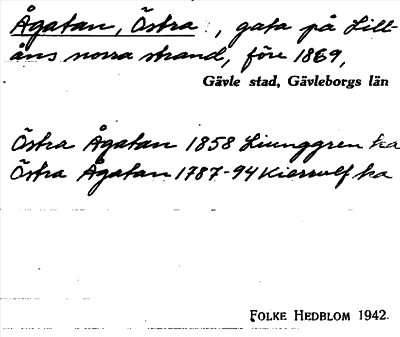 Ågatan, Östra, gata på Lill-
åns norra strand, före 1869,
Gävle stad, Gävleborgs län
Östra Ågatan 1858 Ljunggren ka
Östra Ågatan 1787-94 Kierrulf ka
FOLKE HEDBLOM 1942.